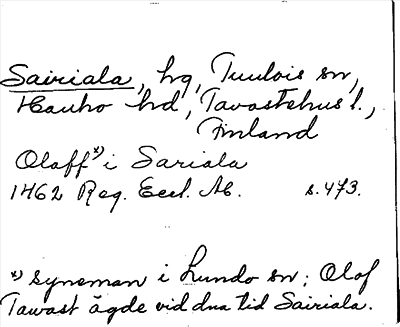 Sairiala, hg, Tuulois sn,
Hauho hd, Tavastehus l.,
Finland
Olaff*) i Sariala
1462 Reg. Eccl. Ab. s. 473.
*) Syneman i Lundo sn; Olof
Tawast ägde vid dna tid Sairiala.